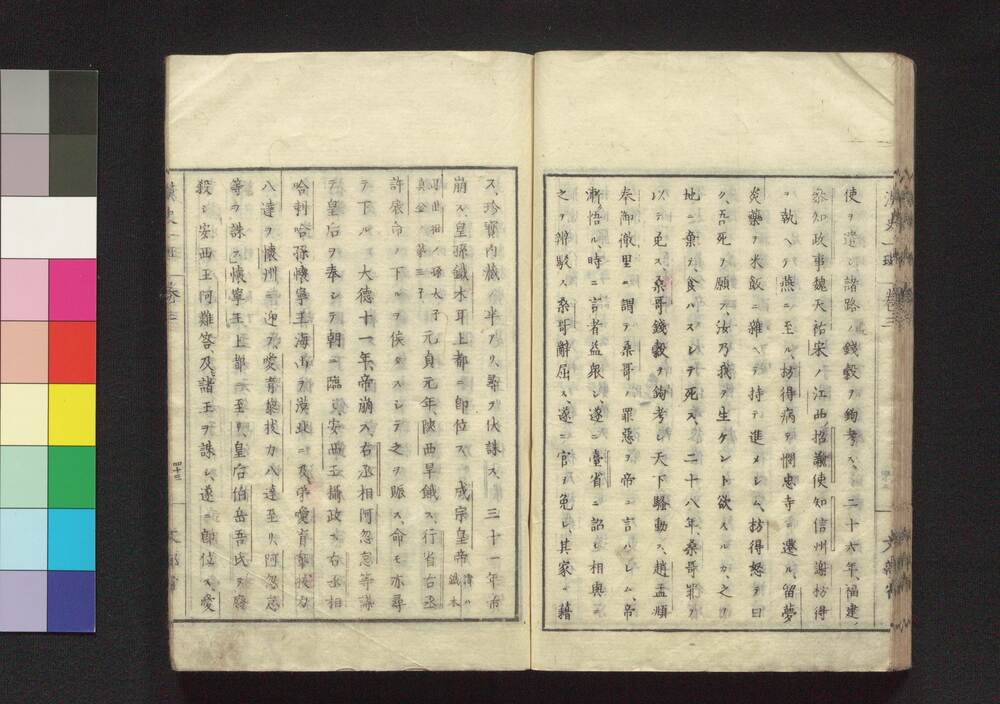 使ヲ遣シ諸路ノ錢穀ヲ鉤考ス、二十六年、福建
參知政事魏天祐宋ノ江西招諭使知信州謝枋得
ヲ執ヘテ燕ニ至ル、枋得病テ憫忠寺ニ遷ル、留夢
炎藥ヲ米飯ニ雜ヘテ持テ進メシム、枋得怒テ曰
ク、吾死ヲ願フ、汝乃我ヲ生ケント欲スルカ、之ヲ
地ニ棄テ、食ハスシテ死ス、二十八年、桑哥罪ヲ
以テ免ス、桑哥錢穀ヲ鉤考シ天下騷動ス、趙孟頫
奉御徹里ニ謂テ桑哥ノ罪惡ヲ帝ニ言ハシム、帝
漸悟ル、時ニ言者益衆シ、遂ニ臺省ニ詔シ相與ニ
之ヲ辨駁ス、桑哥辭屈ス、遂ニ官ヲ免シ其家ヲ籍
漢史一班
卷三
ス、珍寶内藏ノ半アリ、尋テ伏誅ス、三十一年帝
崩ス、皇孫鐵木耳上都ニ即位ス、成宗皇帝諱ハ鐵木
元貞元年、陝西旱饑ス、行省右丞
許扆帝ノ下ルヲ俟タスシテ之ヲ賑ス、命モ亦尋
テ下ル、大德十一年、帝崩ス、右丞相阿忽怠等謀
テ皇后ヲ奉シテ朝ニ臨ミ、安西王攝政ス、右丞相
哈剌哈孫懷寧王海山ヲ漠北ニ及
八達ヲ懷州ニ迎フ、愛育黎拔力八達至リ、阿忽怠
等ヲ誅ス、懷寧王上都ニ至リ、皇后伯岳吾氏ヲ廢
殺シ安西王阿難答及諸王ヲ誅シ、遂ニ即位ス、愛
漢史一班
卷三
四十三
文部省